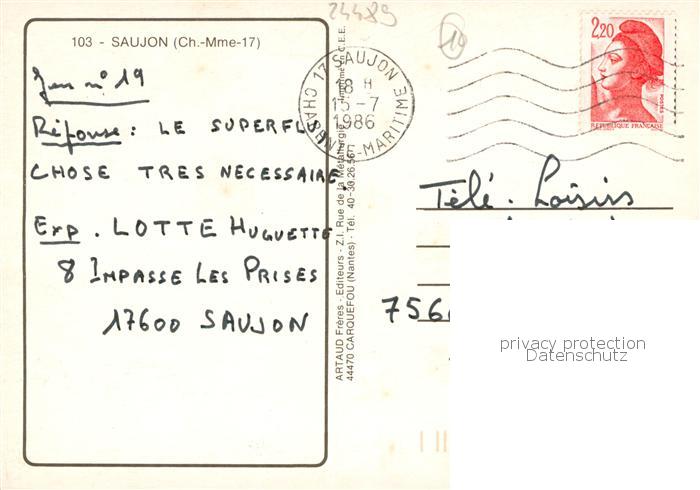 24489
19
103 - SAUJON (Ch.-Mme-17)
Jeu n° 19
Réponse : LE SUPERFLU,
CHOSE TRES NECESSAIRE.
Exp. LOTTE HUGUETTE
8 IMPASSE LES PRISES
17600 SAUJON
ARTAUD Frères - Editeurs - Z.I. Rue de la Métallurgie - Imprimé en C.E.E.
44470 CARQUEFOU (Nantes) - Tél. 40-30.26.56
17 SAUJON
18 H
15-7
1986
CHARENTE-MARITIME
2,20
POSTES
REPUBLIQUE FRANÇAISE
Télé. Loisirs
756
privacy protection
Datenschutz